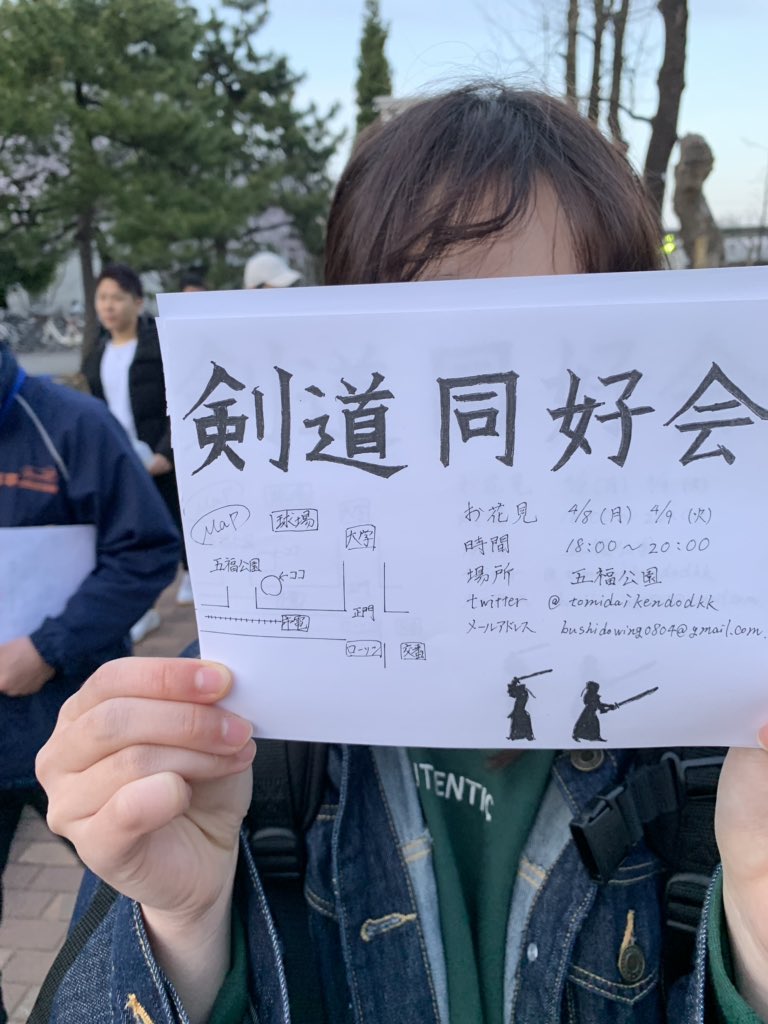 剣道同好会
MAP
球場
大学
五福公園
←ココ
正門
市電
ローソン
交番
お花見 4/8(月) 4/9(火)
時間 18:00~20:00
場所 五福公園
twitter @tomidaikendodkk
メールアドレス bushidowing0804@gmail.com
UTENTIC